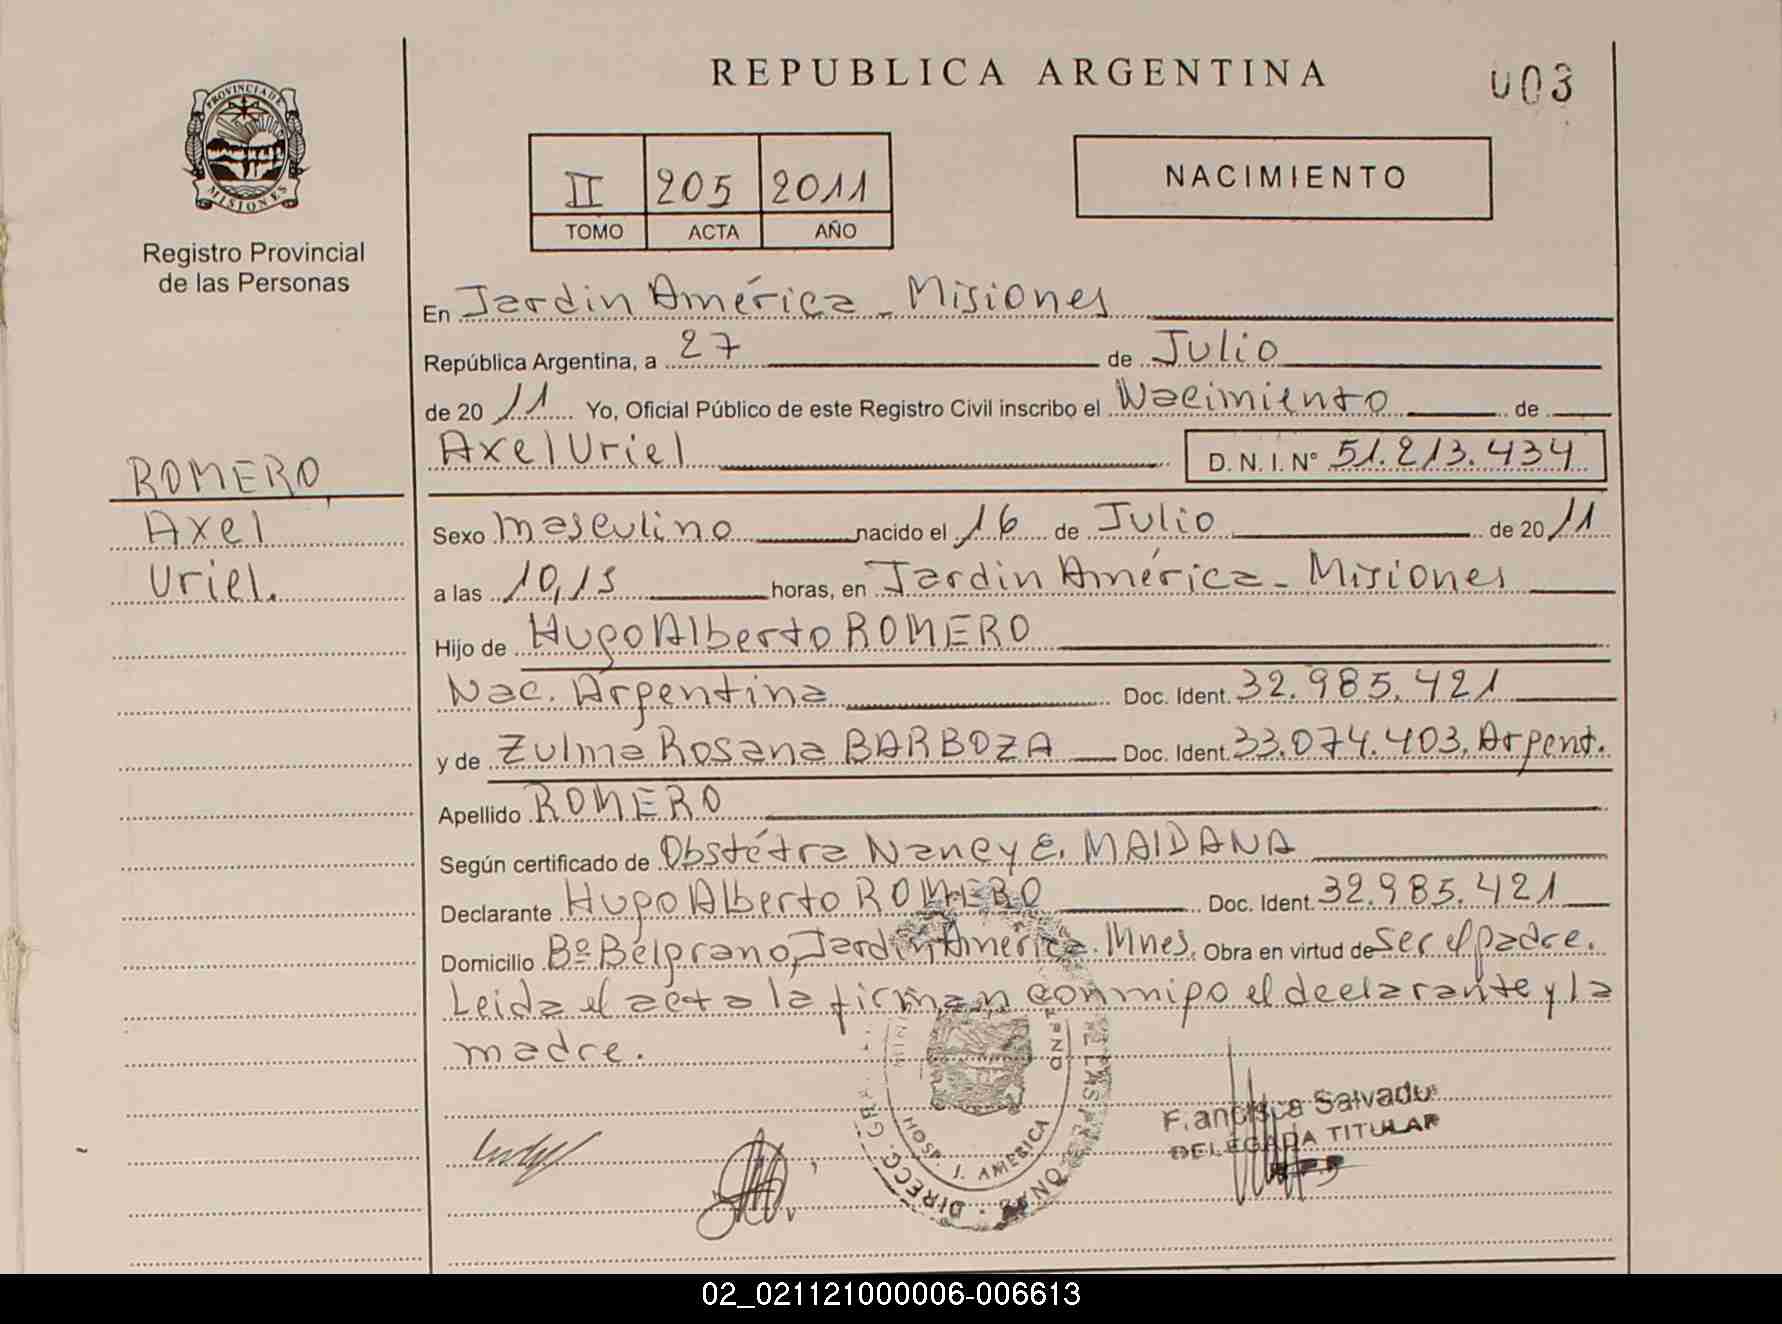 REPUBLICA ARGENTINA
003
PROVINCIA DE
MISIONES
Registro Provincial
de las Personas
II 205 2011
TOMO ACTA AÑO
NACIMIENTO
En Jardin América - Misiones
República Argentina, a 27 de Julio
de 2011 Yo, Oficial Público de este Registro Civil inscribo el Nacimiento de
Axel Uriel D. N. I. Nº 51.213.434
ROMERO
Axel
Uriel.
Sexo Masculino nacido el 16 de Julio de 2011
a las 10,15 horas, en Jardin América - Misiones
Hijo de Hugo Alberto ROMERO
Nac. Argentina Doc. Ident. 32.985.421
y de Zulma Rosana BARBOZA Doc. Ident. 33.074.403, Argent.
Apellido ROMERO
Según certificado de Obstétra Nancy E. MAIDANA
Declarante Hugo Alberto ROMERO Doc. Ident. 32.985.421
Domicilio Bº Belgrano, Jardin América. Mnes. Obra en virtud de Ser el padre.
Leida el acta la firman conmigo el declarante y la
madre.
HOSP. J. AMERICA
DIRECC. GRAL
DELEGADA TITULAR
02_021121000006-006613